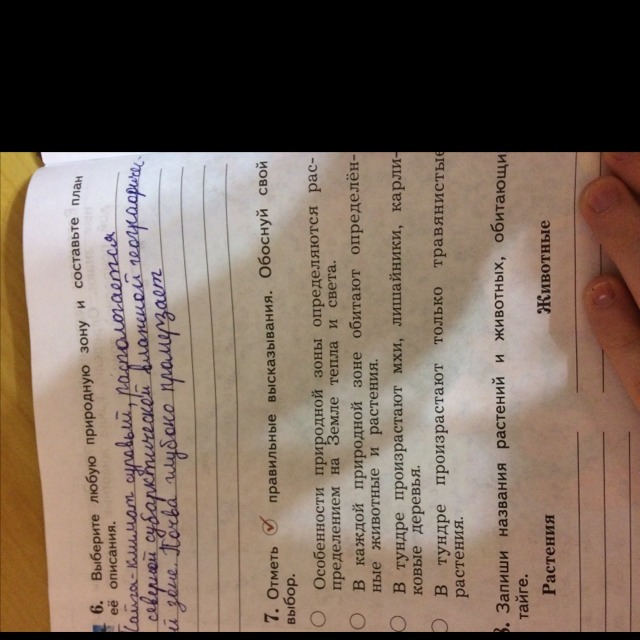 6. Выберите любую природную зону и составьте план
её описания.
Тайга-климат суровый, располагается
северной субарктической влажной географичес-
й зоне. Почва глубоко промерзает
7. Отметь правильные высказывания. Обоснуй свой
выбор.
Особенности природной зоны определяются рас-
пределением на Земле тепла и света.
В каждой природной зоне обитают определён-
ные животные и растения.
В тундре произрастают мхи, лишайники, карли-
ковые деревья.
В тундре произрастают только травянистые
растения.
8. Запиши названия растений и животных, обитающи
тайге.
Растения Животные